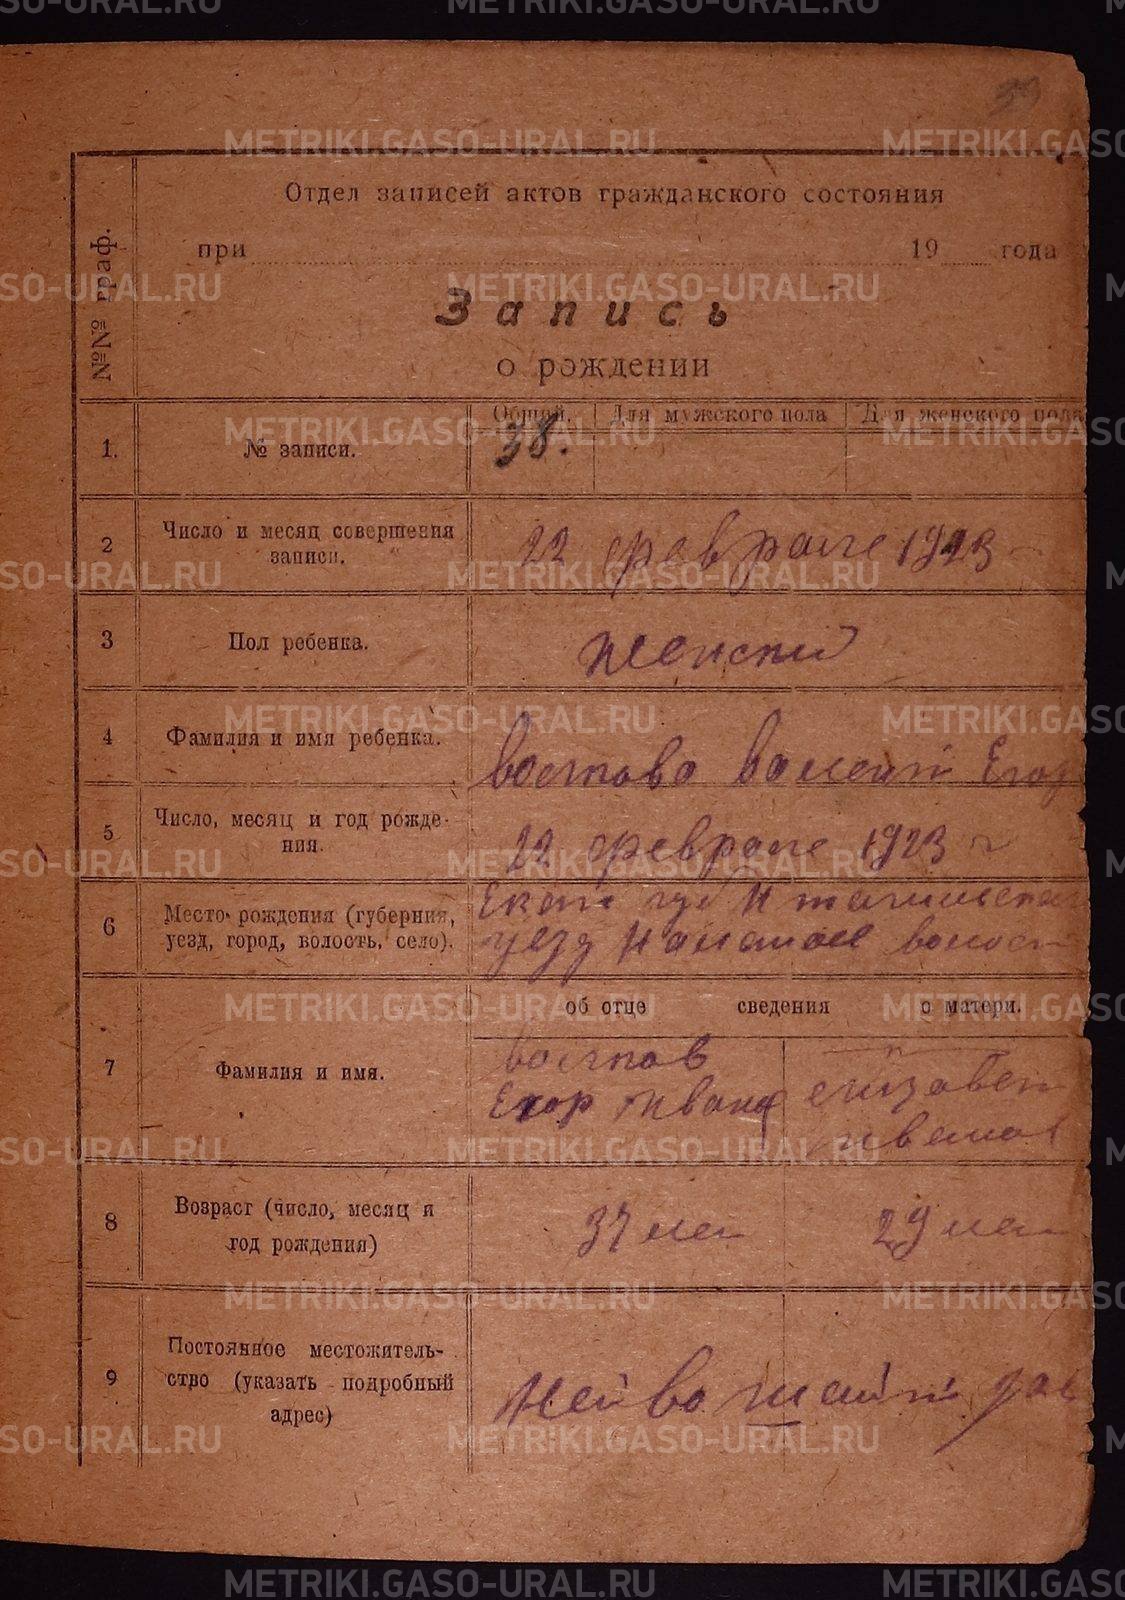 39
Отдел записей актов гражданского состояния
при 19 года
№№ граф.
Запись
о рождении
Общий. Для мужского пола Для женского пола
1. № записи. 38.
2 Число и месяц совершения записи. 22 феврале 1923
3 Пол ребенка. женский
4 Фамилия и имя ребенка. Егор
5 Число, месяц и год рождения. 22 феврале 1923 г
6 Место рождения (губерния, уезд, город, волость, село). Екат губ Н тагильска
уезд волост
об отце сведения о матери.
7 Фамилия и имя.
Егор Иванов
8 Возраст (число, месяц и год рождения) 37 лет 29 лет
9 Постоянное местожительство (указать подробный адрес) зав
METRIKI.GASO-URAL.RU